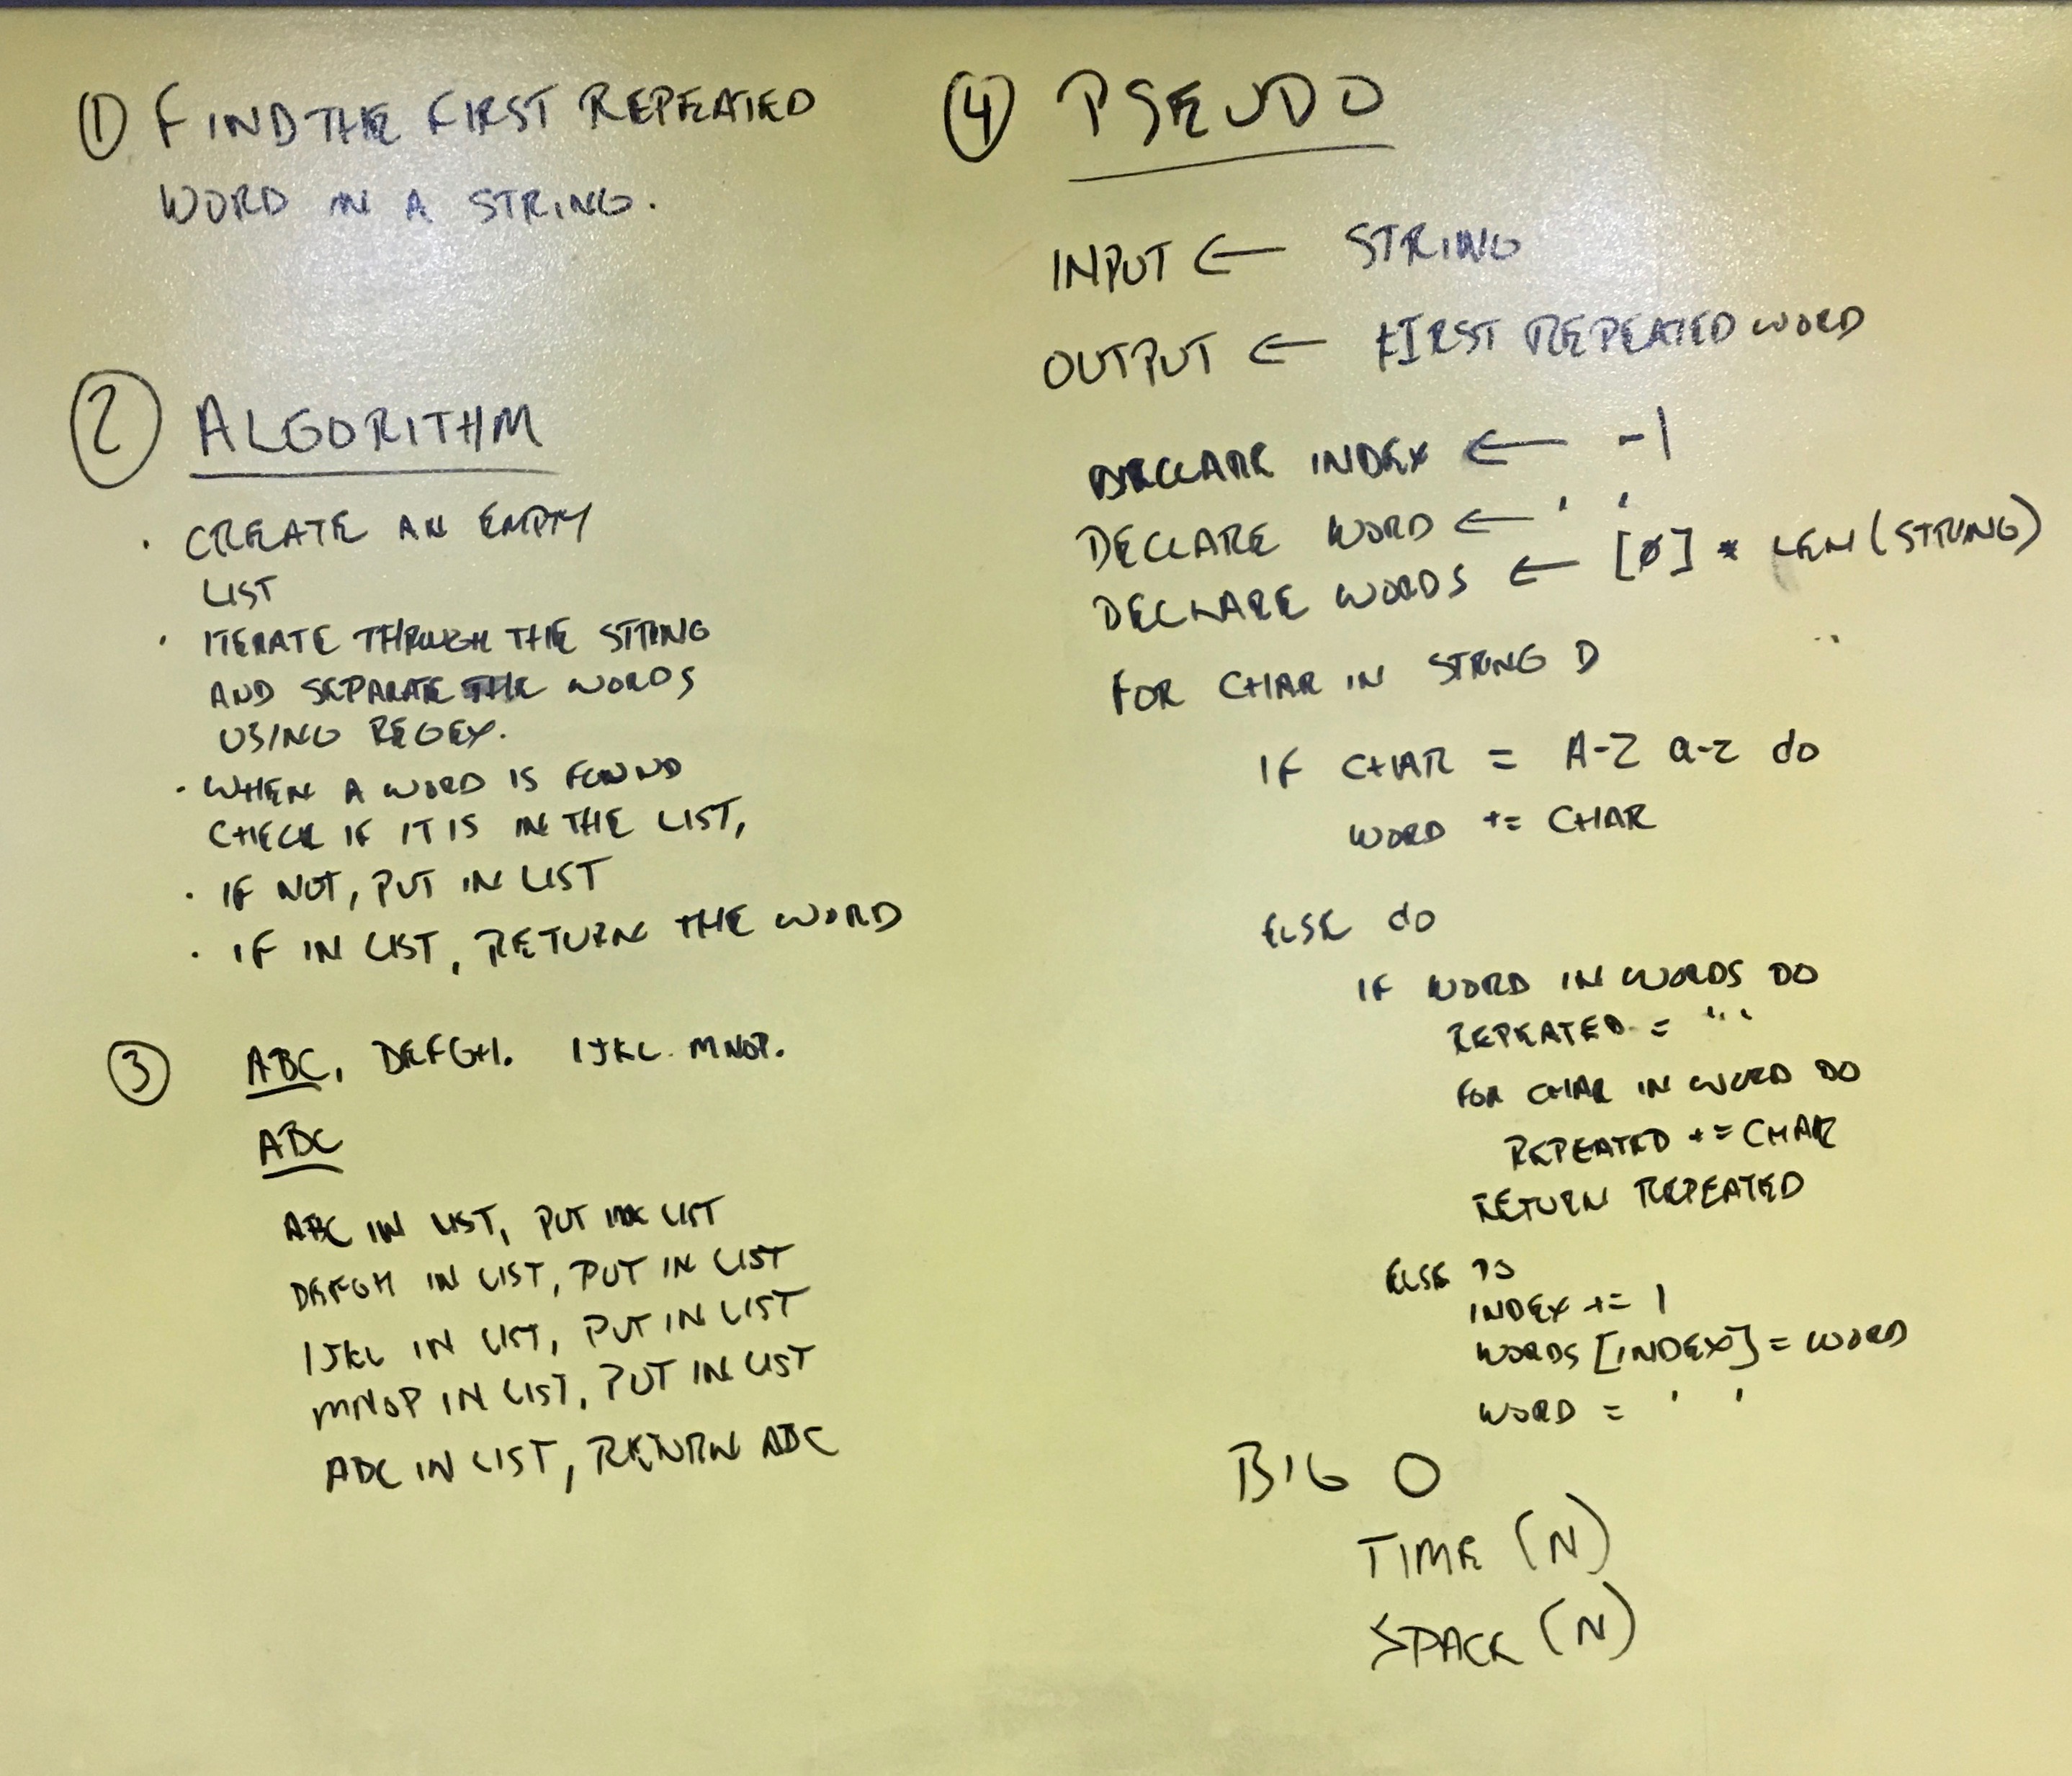 ① FIND THE FIRST REPEATED
WORD IN A STRING.
② ALGORITHM
· CREATE AN EMPTY
LIST
· ITERATE THROUGH THE STRING
AND SEPARATE THE WORDS
USING REGEX.
· WHEN A WORD IS FOUND
CHECK IF IT IS IN THE LIST,
· IF NOT, PUT IN LIST
· IF IN LIST, RETURN THE WORD
③ ABC, DEFGH. IJKL MNOP.
ABC
ABC IN LIST, PUT IN LIST
DEFGH IN LIST, PUT IN LIST
IJKL IN LIST, PUT IN LIST
MNOP IN LIST, PUT IN LIST
ABC IN LIST, RETURN ABC
④ PSEUDO
INPUT ← STRING
OUTPUT ← FIRST REPEATED WORD
DECLARE INDEX ← -1
DECLARE WORD ← ' '
DECLARE WORDS ← [0] * LEN(STRING)
FOR CHAR IN STRING D
IF CHAR = A-Z a-z do
WORD += CHAR
ELSE do
IF WORD IN WORDS DO
REPEATED = ""
FOR CHAR IN WORD DO
REPEATED += CHAR
RETURN REPEATED
ELSE DO
INDEX += 1
WORDS [INDEX] = WORD
WORD = ' '
BIG O
TIME (N)
SPACE (N)